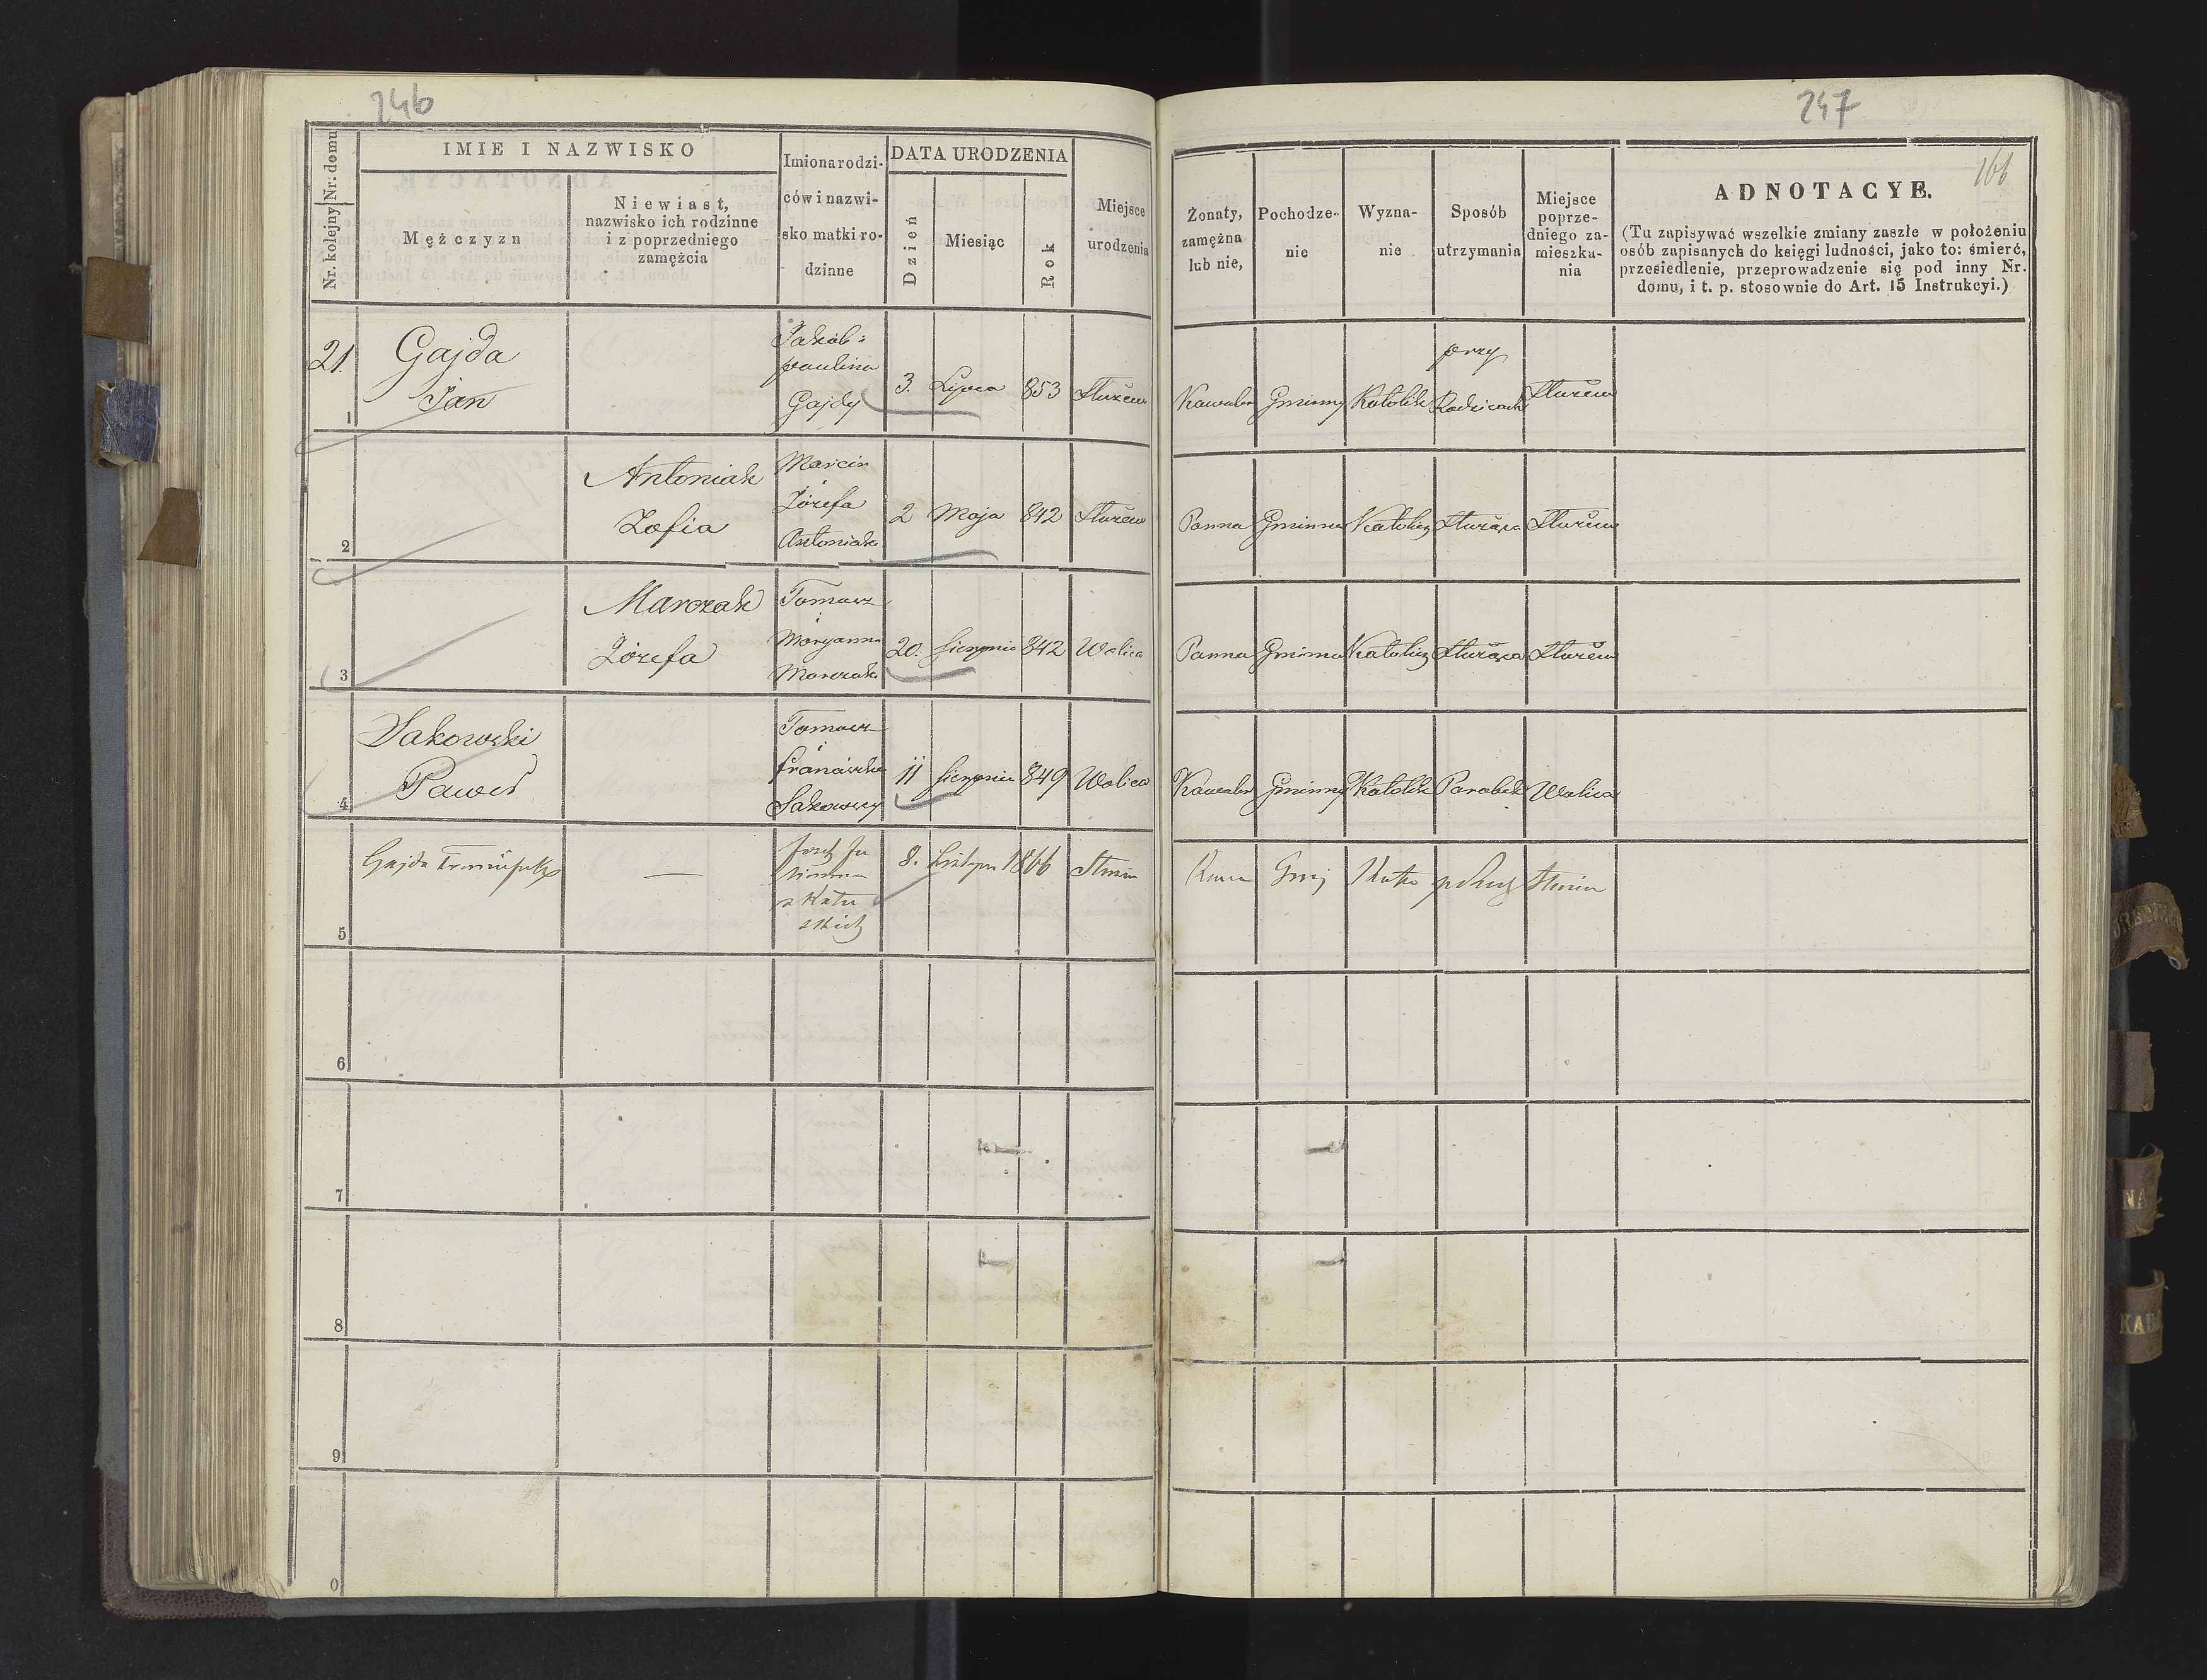 246
Nr. kolejny Nr: domu
IMIE I NAZWISKO
Mężczyzn
Niewiast,
nazwisko ich rodzinne
i z poprzedniego
zamężcia
Imiona rodzi-
ców i nazwi-
sko matki ro-
dzinne
DATA URODZENIA
Dzień
Miesiąc
Rok
Miejsce
urodzenia
21.
1
Gajda
Jan
Jakób i
paulina
Gajdy
3.
Lipca
853
Służew
2
Antoniak
Zofia
Marcin
i
Józefa
Antoniak
2
Maja
842
Służew
3
Marczak
Józefa
Tomasz
i
Maryanna
Marczak
20.
sierpnia
842
Wolica
4
Sakowski
Paweł
Tomasz
i
franciszka
Sakowscy
11
sierpnia
849
Wolica
5
Gajda
—
8.
Listopa
1866
6
7
8
9
0
247
166
Żonaty,
zamężna
lub nie,
Pochodze-
nie
Wyzna-
nie
Sposób
utrzymania
Miejsce
poprze-
dniego za-
mieszka-
nia
ADNOTACYE.
(Tu zapisywać wszelkie zmiany zaszłe w położeniu
osób zapisanych do księgi ludności, jako to: śmierć,
przesiedlenie, przeprowadzenie się pod inny Nr.
domu, i t. p. stosownie do Art. 15 Instrukcyi.)
Kawaler
Gminny
Katolik
przy
Rodzicach
Służew
Panna
Gminna
Katolicz
Służąca
Służew
Panna
Gminna
Katolicz
Służąca
Służew
Kawaler
Gminny
Katolik
Parobek
Wolica